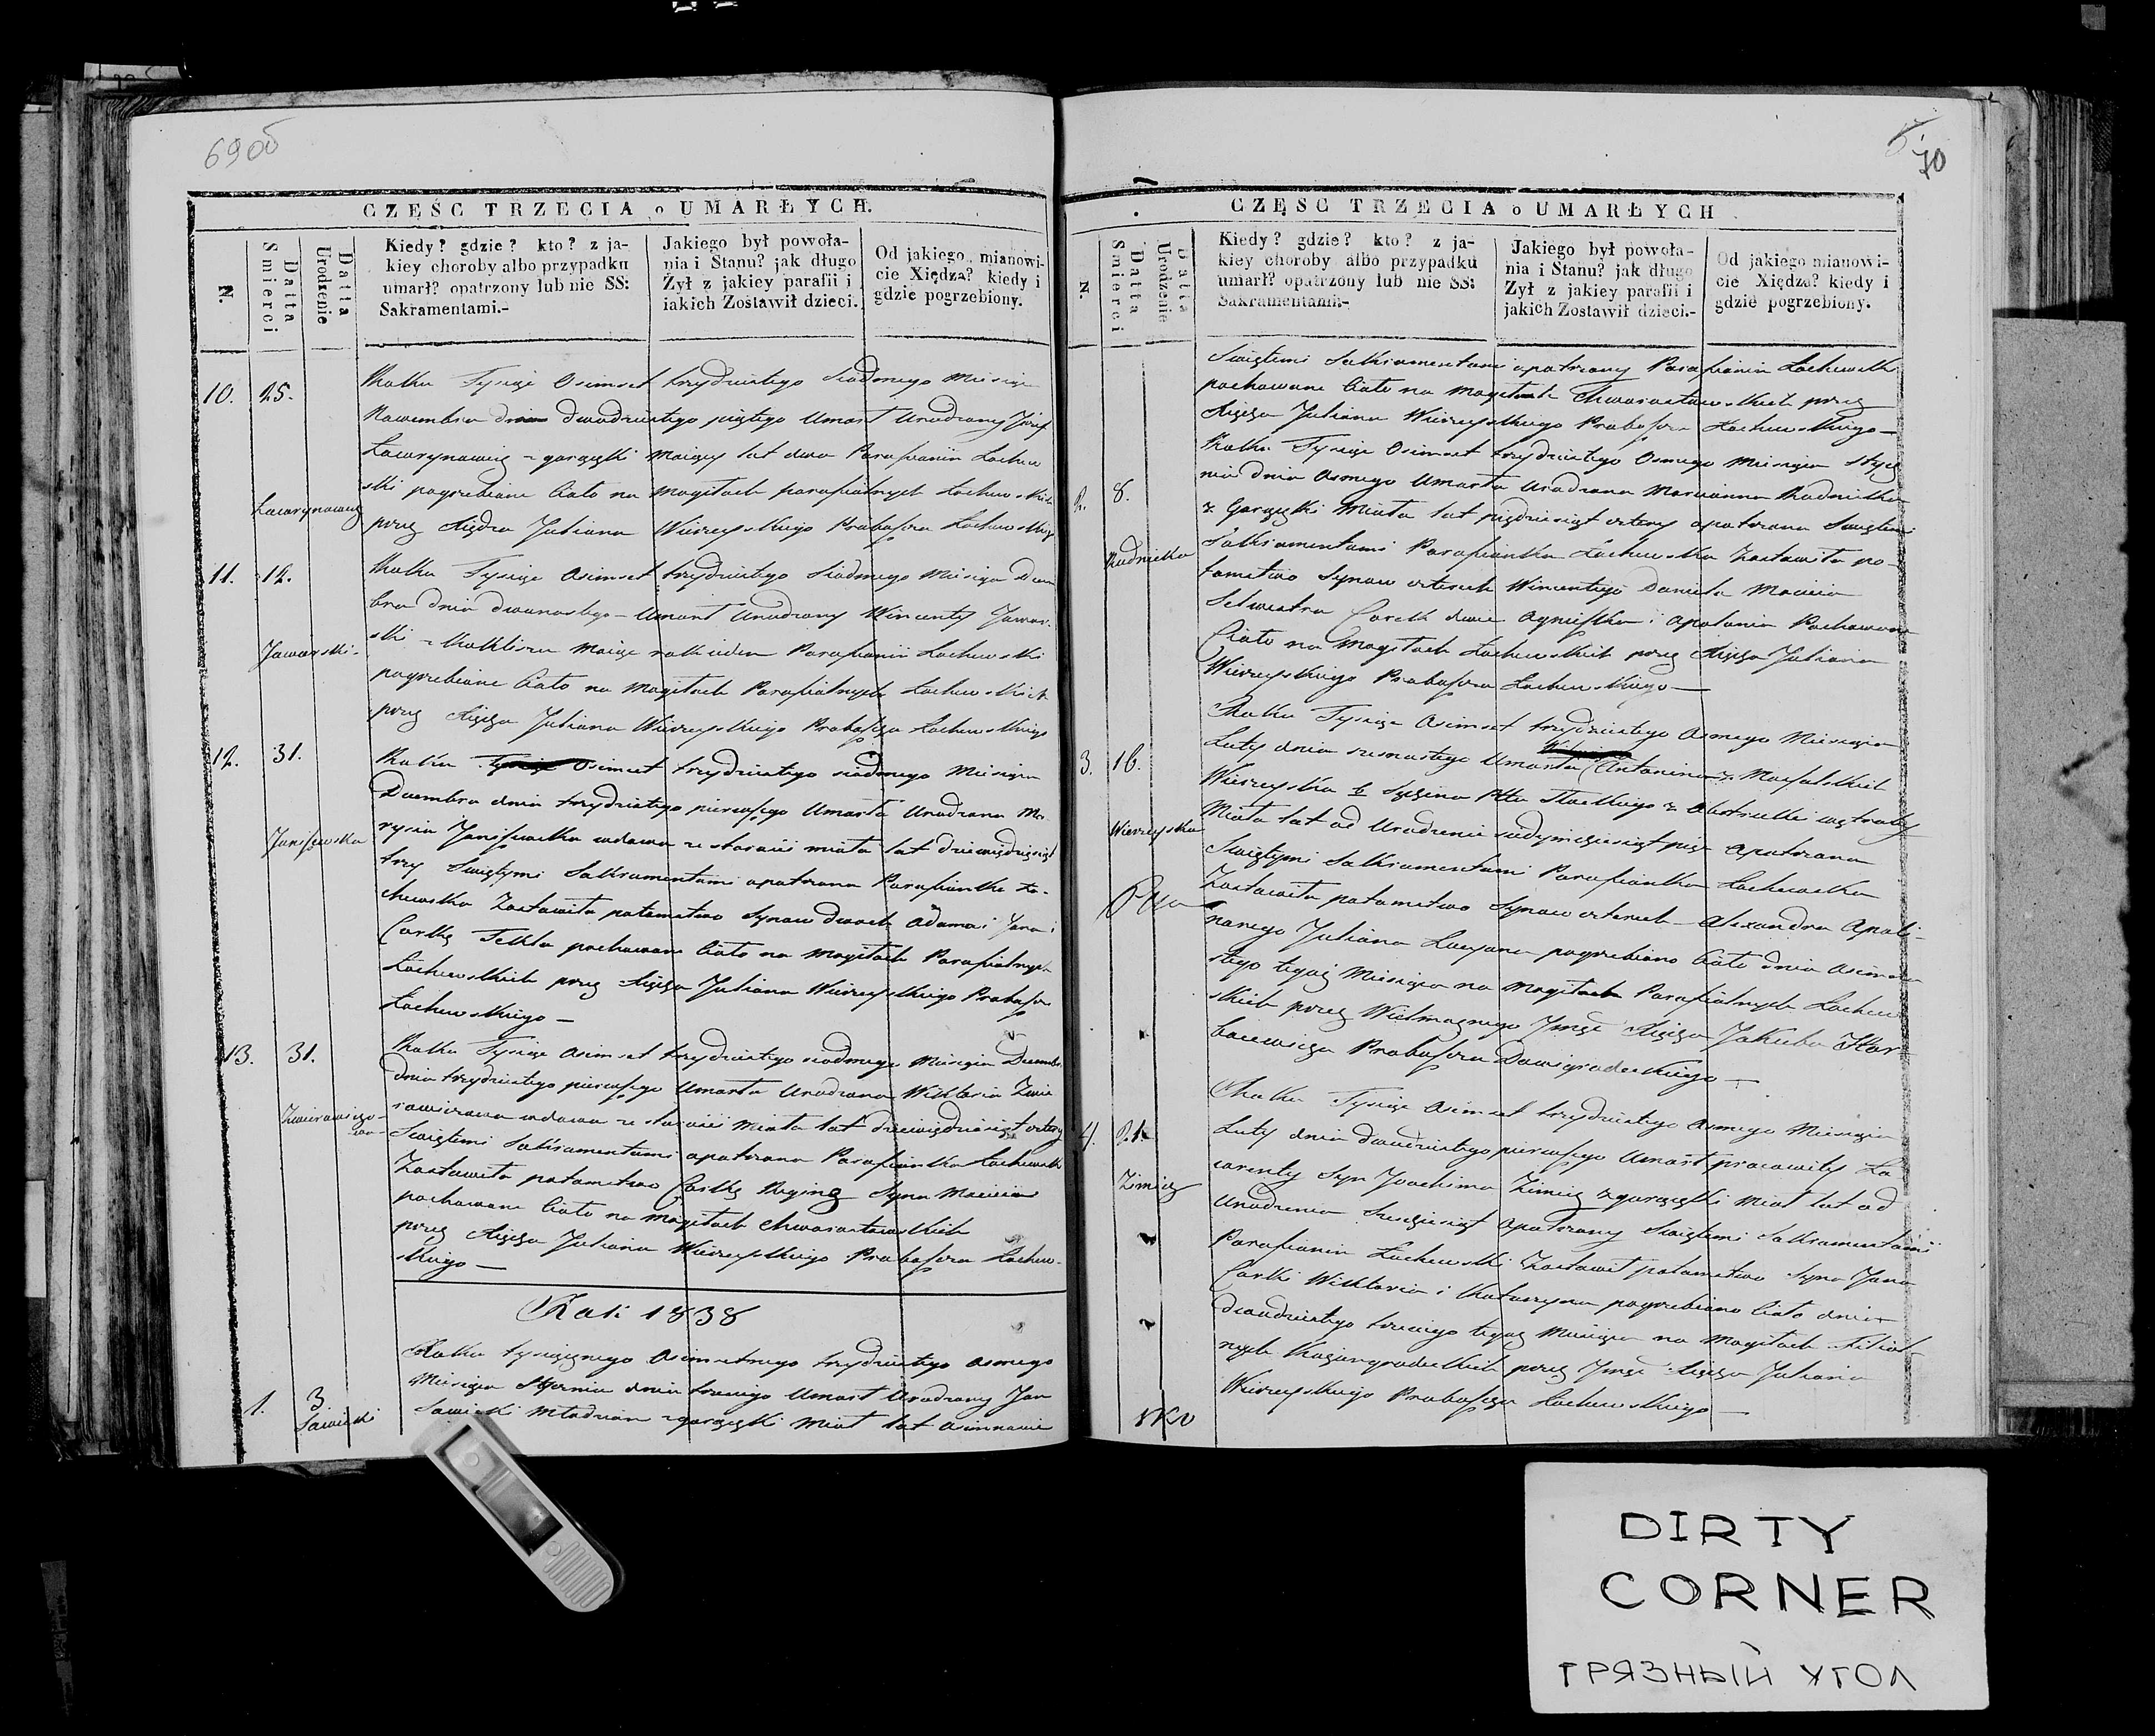 69об
CZĘŚC TRZECIA o UMARŁYCH.
N.
Datta Smierci
Datta Urodzenie
Kiedy? gdzie? kto? z ja-
kiey choroby albo przypadku
umarł? opatrzony lub nie SS:
Sakramentami.-
Jakiego był powoła-
nia i Stanu? jak długo
Żył z jakiey parafii i
iakich Zostawił dzieci.
Od jakiego mianowi-
cie Xiędza? kiedy i
gdzie pogrzebiony.
10. 25.
Roku Tysiąc Osimset trzydziestego Siodmego Miesiąca
Nowembra dnia dwudziestego piątego Umarł Urodzony Jozef
Ławrynowicz z gorączki maiący lat dwa Parafianin Łachew
ski pogrzebione Ciało na Mogiłach parafialnych Łachewskich
Ławrynowicz
przez Xiędza Juliana Wierzeyskiego Probosza Łachewskiego
11. 12.
Roku Tysiąc Osimset trzydziestego Siodmego Miesiąca Decem
bra dnia dwunastego - Umarł Urodzony Wincenty Jawor-
Jaworski
ski z Kokliszu maiąc rok ieden Parafianin Łachewski
pogrzebione Ciało na Mogiłach Parafialnych Łachewskich
przez Xiędza Juliana Wierzeyskiego Probosza Łachewskiego
12. 31.
Roku Tysiąc Osimset trzydziestego siodmego Miesiąca
Decembra dnia trzydziestego pierwszego Umarła Urodzona Ma-
Janiszewska
rysia Janiszewska wdowa ze starosci miała lat dziewiędziesiąt
trzy Swiętymi Sakramentami opatrzona Parafianka Ła-
chewska Zostawiła potomstwo Synow dwoch Adama i Jana i
Corkę Tekla pochowane Ciało na Mogiłach Parafialnych
Łachewskich przez Xiędza Juliana Wierzeyskiego Probosza
Łachewskiego -
13. 31.
Roku Tysiąc Osimset trzydziestego siodmego Miesiąca Decembr
dnia trzydziestego pierwszego Umarła Urodzona Wiktoria Zwie
rowiczowa wdowa ze starosci Miała lat dziewiędziesiąt cztery
Swiętemi Sakramentami opatrzona Parafianka Łachewsk
Zostawiła potomstwo Corkę Reginę Syna Macieia
pochowane Ciało na Mogiłach
przez Xiędza Juliana Wierzeyskiego Probosza Łachew-
skiego -
Roku 1838
Roku tysiącznego Osimsetnego trzydziestego osmego
1. 3.
Sawicki
Miesiąca Stycznia dnia trzeciego Umarł Urodzony Jan
Sawicki Młodzian z gorączki Miał lat Osimnascie
70
CZĘSC TRZECIA o UMARŁYCH
N.
Datta Smierci
Datta Urodzenie
Kiedy? gdzie? kto? z ja-
kiey choroby albo przypadku
umarł? opatrzony lub nie SS:
Sakramentami.-
Jakiego był powoła-
nia i Stanu? jak długo
Żył z jakiey parafii i
jakich Zostawił dzieci.-
Od jakiego mianowi-
cie Xiędza? kiedy i
gdzie pogrzebiony.
Swiętemi Sakramentami opatrzony Parafianin Łachewski
pochowane Ciało na Mogiłach przez
Xiędza Juliana Wierzeyskiego Probosza Łachewskiego -
Roku Tysiąc Osimset trzydziestego Osmego Miesiąca Stycz
2. 8.
nia dnia Osmego Umarła Urodzona Maryanna Rudnicka
z Gorączki Miała lat piędziesiąt cztery opatrzona Swiętemi
Rudnicka
Sakramentami Parafianka Łachewska Zostawiła po-
tomstwo Synow czterech Wincentego Daniela Macieia
Selwestra Corek dwie Agnieszka i Apolonia Pochowane
Ciało na Mogiłach Łachewskich przez Xiędza Juliana
Wierzeyskiego Probosza Łachewskiego -
Roku Tysiąc Osimset trzydziestego Osmego Miesiąca
3. 16.
Luty dnia szesnastego Umarła Antonina z
Wierzeyska
Miała lat od Urodzenia siedymdziesiąt pięć Opatrzona
Swiętymi Sakramentami Parafianka Łachewska
Zostawiła potomstwo Synow czterech Alexandra Apoli-
narego Juliana Lucyana pogrzebiono Ciało dnia Osimna
stego tegoż Miesiąca na Mogiłach Parafialnych Łachew
skich przez Wielmożnego Jmść Xiędza Jakuba
Probosza Dawigrodeckiego -
Roku Tysiąc Osimset trzydziestego Osmego Miesiąca
4. 21.
Luty dnia dwudziestego pierwszego Umarł pracowity Ła-
Zimicz
wrenty Syn Joachima Zimicz z gorączki Miał lat od
Urodzenia Opatrzony Swiętemi Sakramentami
Parafianin Łachewski Zostawił potomstwo Syna Jana
Corki Wiktoria i Katarzyna pogrzebiono Ciało dnia
dwudziestego trzeciego tegoż Miesiąca na Mogiłach Filial-
nych Kożangrodeckich przez Jmść Xiędza Juliana
Wierzeyskiego Probosza Łachewskiego -
DIRTY
CORNER
ГРЯЗНЫЙ УГОЛ